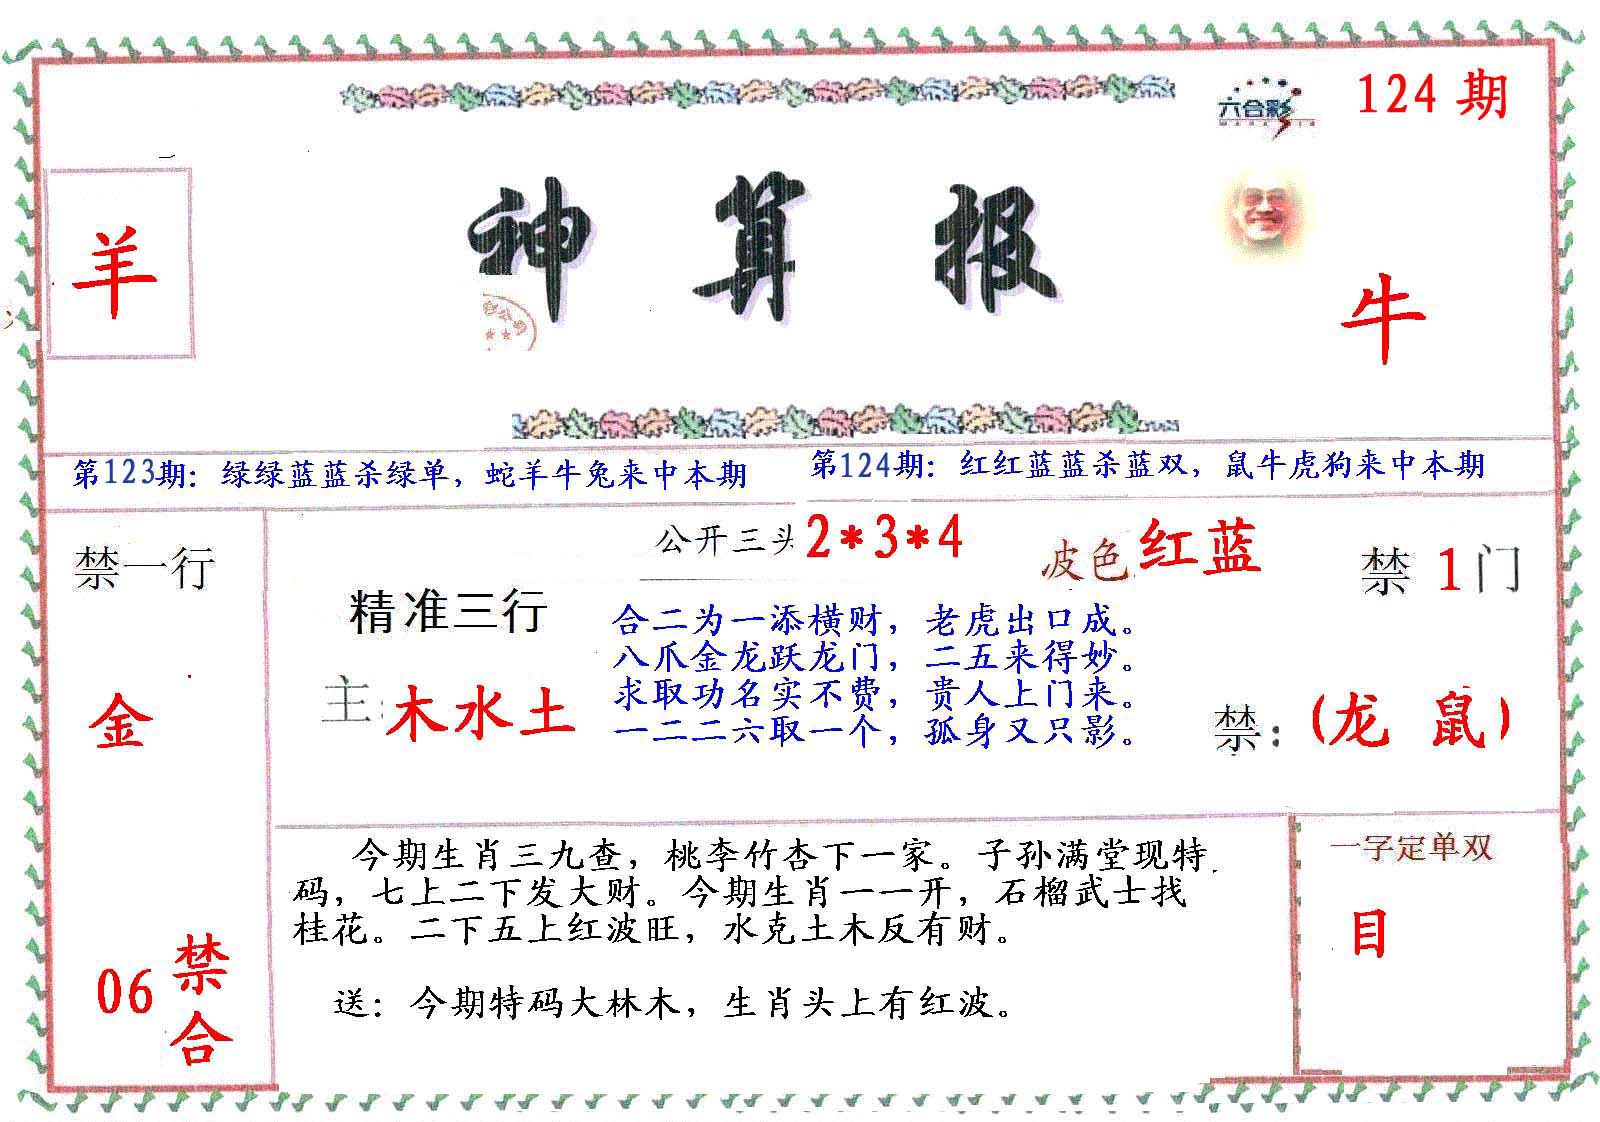 六合彩
124 期
神 算 报
羊
牛
第123期：绿绿蓝蓝杀绿单，蛇羊牛兔来中本期
第124期：红红蓝蓝杀蓝双，鼠牛虎狗来中本期
禁一行
金
06 禁合
公开三头 2*3*4
波色 红蓝
禁 1 门
精准三行
主：木水土
合二为一添横财，老虎出口成。
八爪金龙跃龙门，二五来得妙。
求取功名实不费，贵人上门来。
一二二六取一个，孤身又只影。
禁：(龙 鼠)
今期生肖三九查，桃李竹杏下一家。子孙满堂现特
码，七上二下发大财。今期生肖一一开，石榴武士找
桂花。二下五上红波旺，水克土木反有财。
送：今期特码大林木，生肖头上有红波。
一字定单双
目